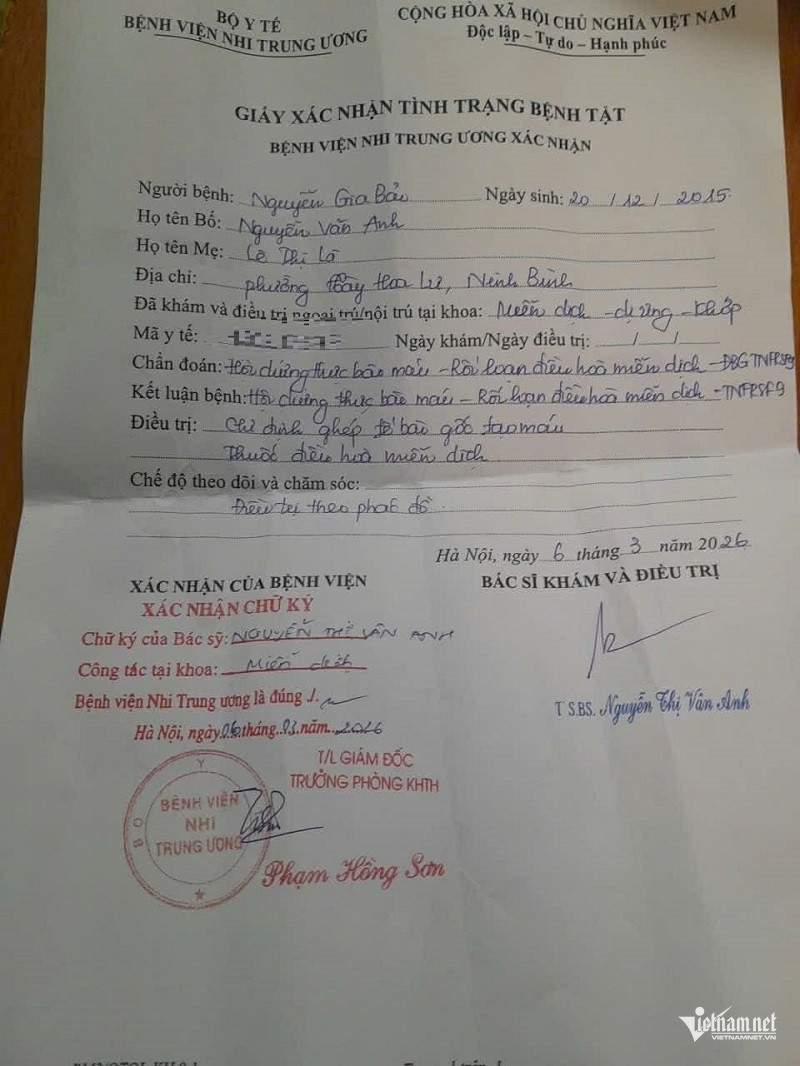 BỘ Y TẾ
BỆNH VIỆN NHI TRUNG ƯƠNG
CỘNG HÒA XÃ HỘI CHỦ NGHĨA VIỆT NAM
Độc lập – Tự do – Hạnh phúc
GIẤY XÁC NHẬN TÌNH TRẠNG BỆNH TẬT
BỆNH VIỆN NHI TRUNG ƯƠNG XÁC NHẬN
Người bệnh: Nguyễn Gia Bảo Ngày sinh: 20 / 12 / 2015
Họ tên Bố: Nguyễn Văn Anh
Họ tên Mẹ: Lê Thị Lã
Địa chỉ: phường Tây Hoa Lư, Ninh Bình
Đã khám và điều trị ngoại trú/nội trú tại khoa: Miễn dịch - dị ứng - Khớp
Mã y tế: Ngày khám/Ngày điều trị: / /
Chẩn đoán: Hội chứng thực bào máu - Rối loạn điều hoà miễn dịch - ĐBG TNFRSF9
Kết luận bệnh: Hội chứng thực bào máu - Rối loạn điều hoà miễn dịch - TNFRSF9
Điều trị: Chỉ định ghép tế bào gốc tạo máu
Thuốc điều hoà miễn dịch
Chế độ theo dõi và chăm sóc:
Điều trị theo phác đồ
Hà Nội, ngày 6 tháng 3 năm 2026
XÁC NHẬN CỦA BỆNH VIỆN
BÁC SĨ KHÁM VÀ ĐIỀU TRỊ
XÁC NHẬN CHỮ KÝ
Chữ ký của Bác sỹ: NGUYỄN THỊ VÂN ANH
Công tác tại khoa: Miễn dịch
Bệnh viện Nhi Trung ương là đúng
TS.BS. Nguyễn Thị Vân Anh
Hà Nội, ngày 06 tháng 03 năm 2026
T/L GIÁM ĐỐC
TRƯỞNG PHÒNG KHTH
BỘ Y
BỆNH VIỆN
NHI
TRUNG ƯƠNG
Phạm Hồng Sơn
Vietnamnet
VIETNAMNET.VN